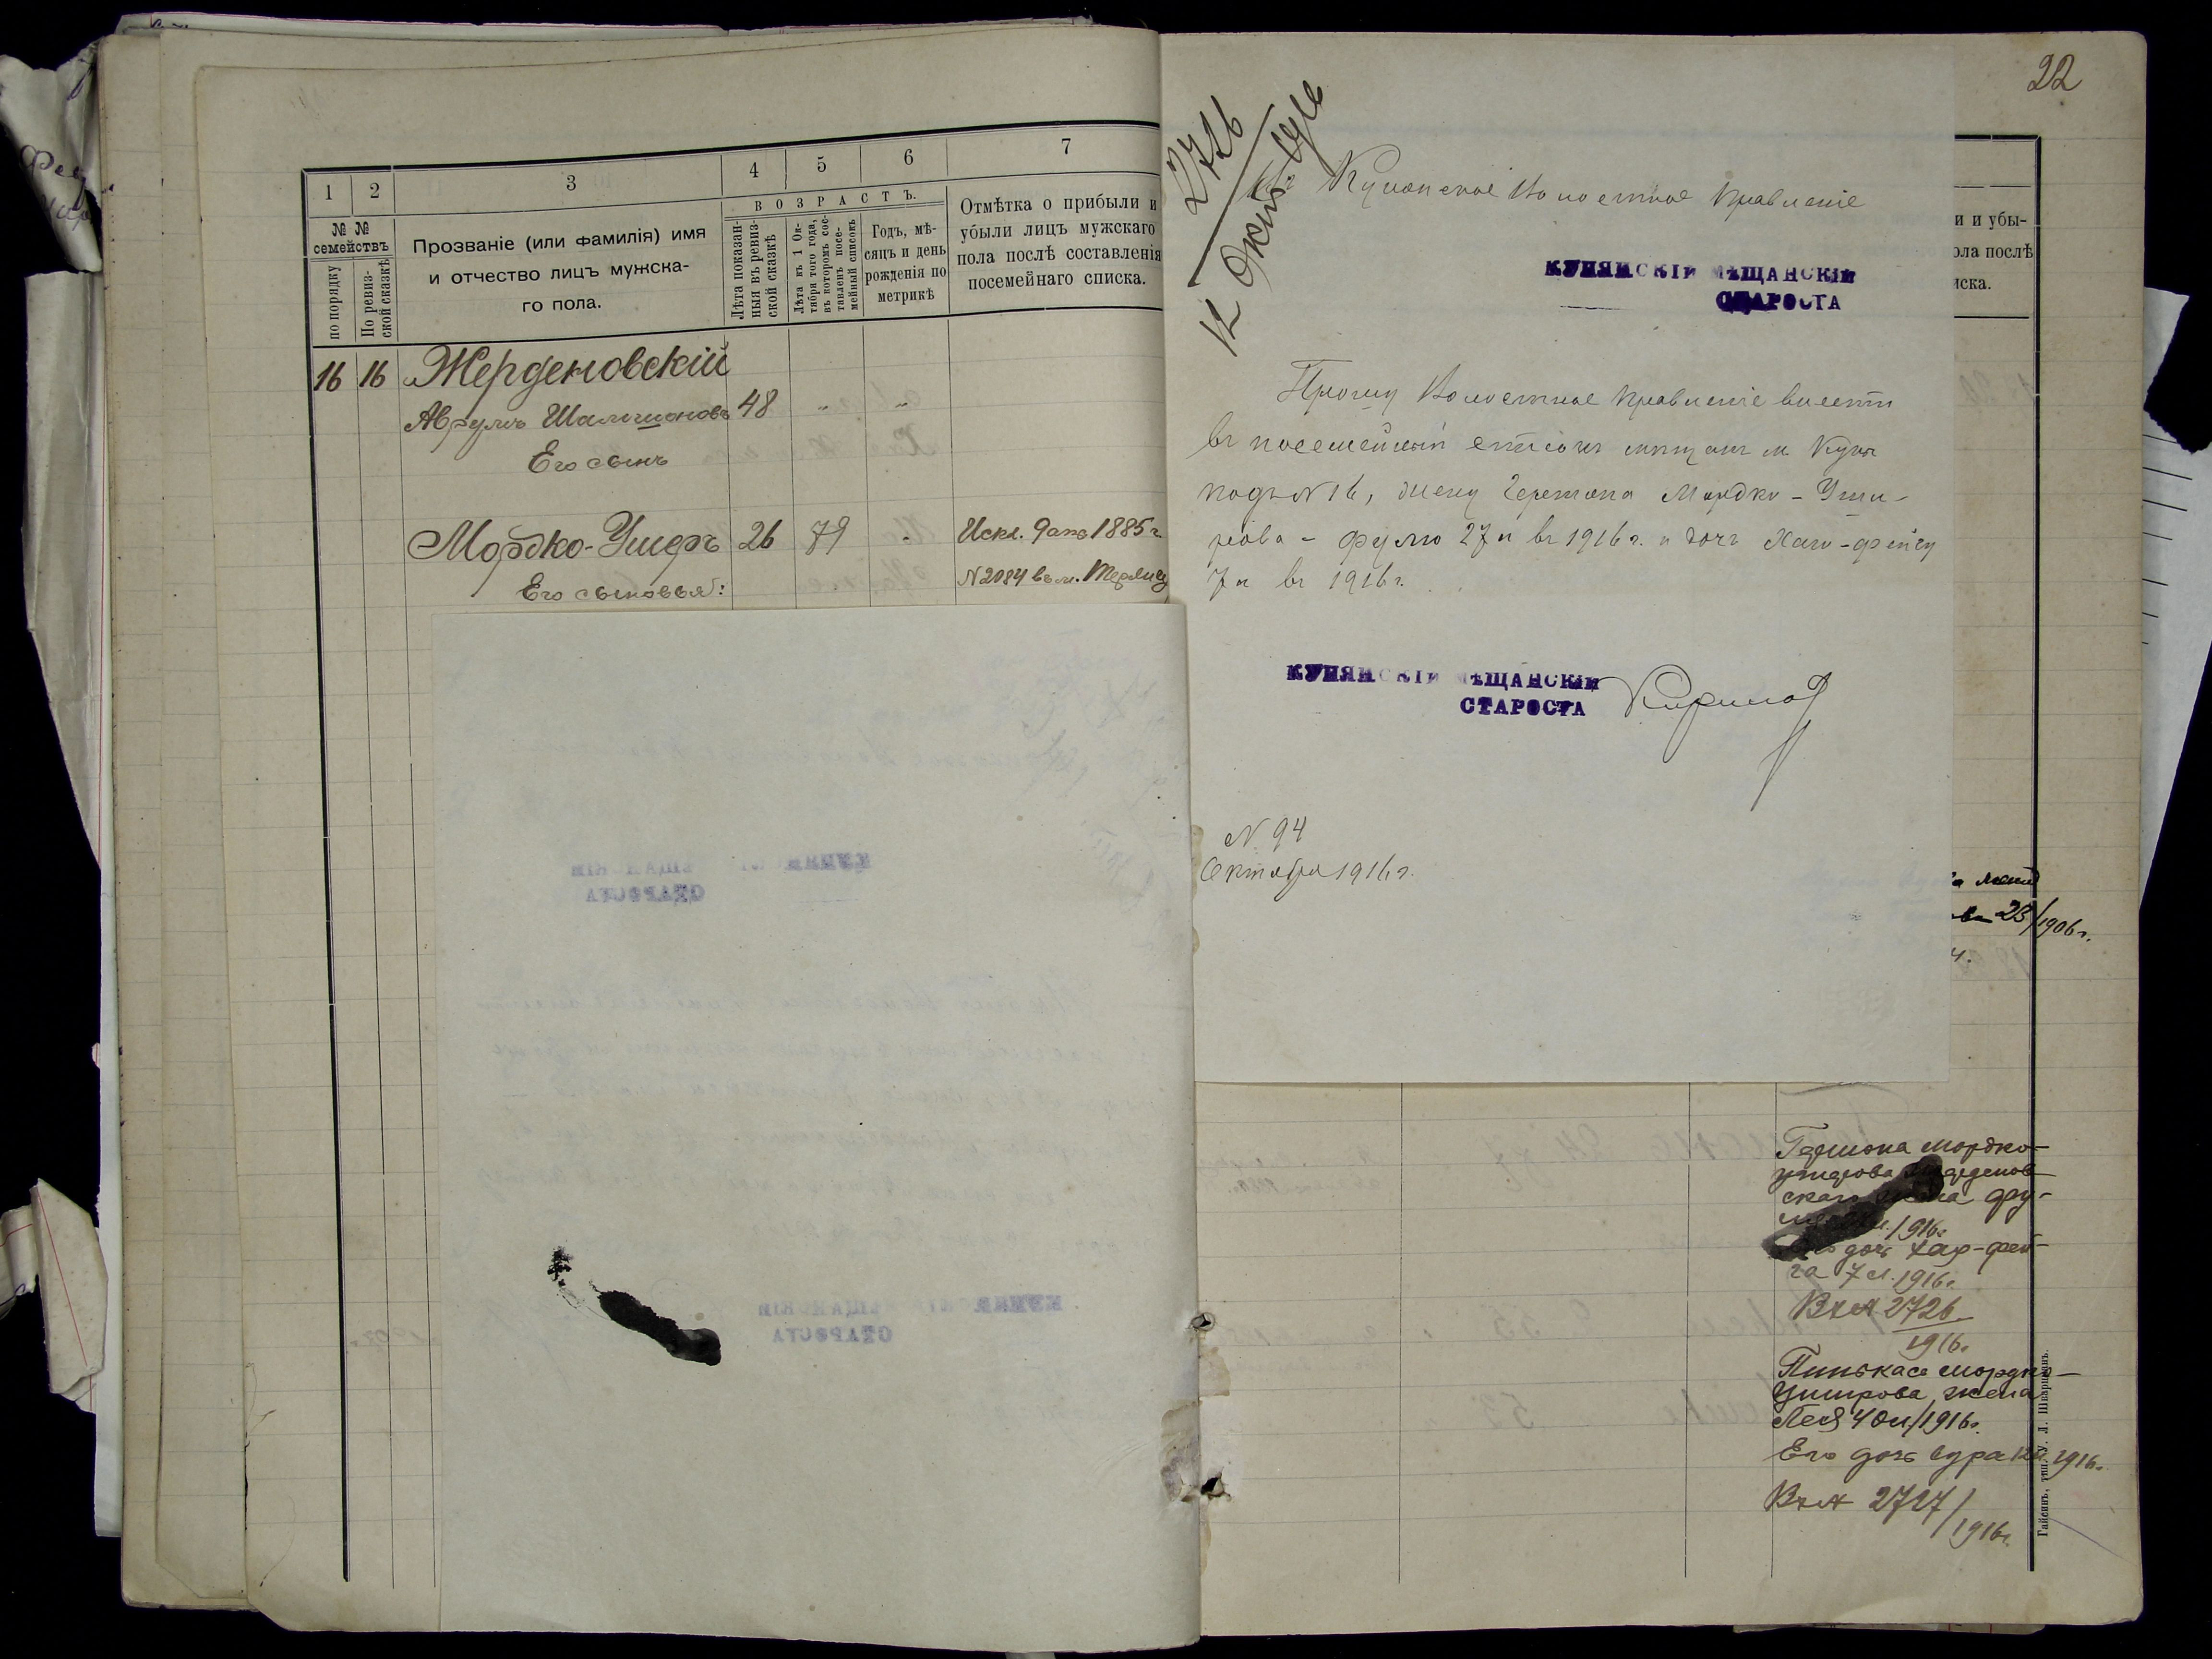 22
1 2 3 4 5 6 7
№ № семействъ
по порядку
По ревиз-
ской сказкѣ
Прозваніе (или фамилія) имя
и отчество лицъ мужска-
го пола.
ВОЗРАСТЪ.
Лѣта показан-
ныя въ ревиз-
ской сказкѣ
Лѣта къ 1 Ок-
тября того года,
въ которомъ сос-
тавленъ посе-
мейный списокъ
Годъ, мѣ-
сяцъ и день
рожденія по
метрикѣ
Отмѣтка о прибыли и
убыли лицъ мужскаго
пола послѣ составленія
посемейнаго списка.
16 16 Жерденовскій
Аврумъ Шальшоновъ 48 " "
Его сынъ
Мордко-Ушеръ 26 79 " Искл. 9 апр 1885 г.
N 2084 въ м. Терлицу
Его сыновья:
2716
12 Октяб 916
Кунянское Волостное Правленіе
КУНЯНСКІЙ МѢЩАНСКІЙ
СТАРОСТА
Прошу Волостное Правленіе внести
въ посемейный списокъ мѣщанъ м Куны
подъ N 16, жену Гершона Мордко-Уше-
рова - Фрумо 27 л въ 1916 г. и дочь Хаю-Фейгу
7 л въ 1916 г.
КУНЯНСКІЙ МѢЩАНСКІЙ
СТАРОСТА
N. 94
Октября 1916 г.
и и убы-
ола послѣ
иска.
23/1906 г.
Гершона Мордко-
Ушерова Жерденов
скаго жена Фру-
1916 г.
дочь Хая-Фей-
га 7 л. 1916 г.
Вх N 2726
1916 г.
Пинькаса Мордко-
Ушерова жена
Лея 40 л/1916 г.
Его дочь Сура 12 л. 1916 г.
Вх N 2717/1916 г.
Гайсинъ, тип. У. Л. Шварцманъ.